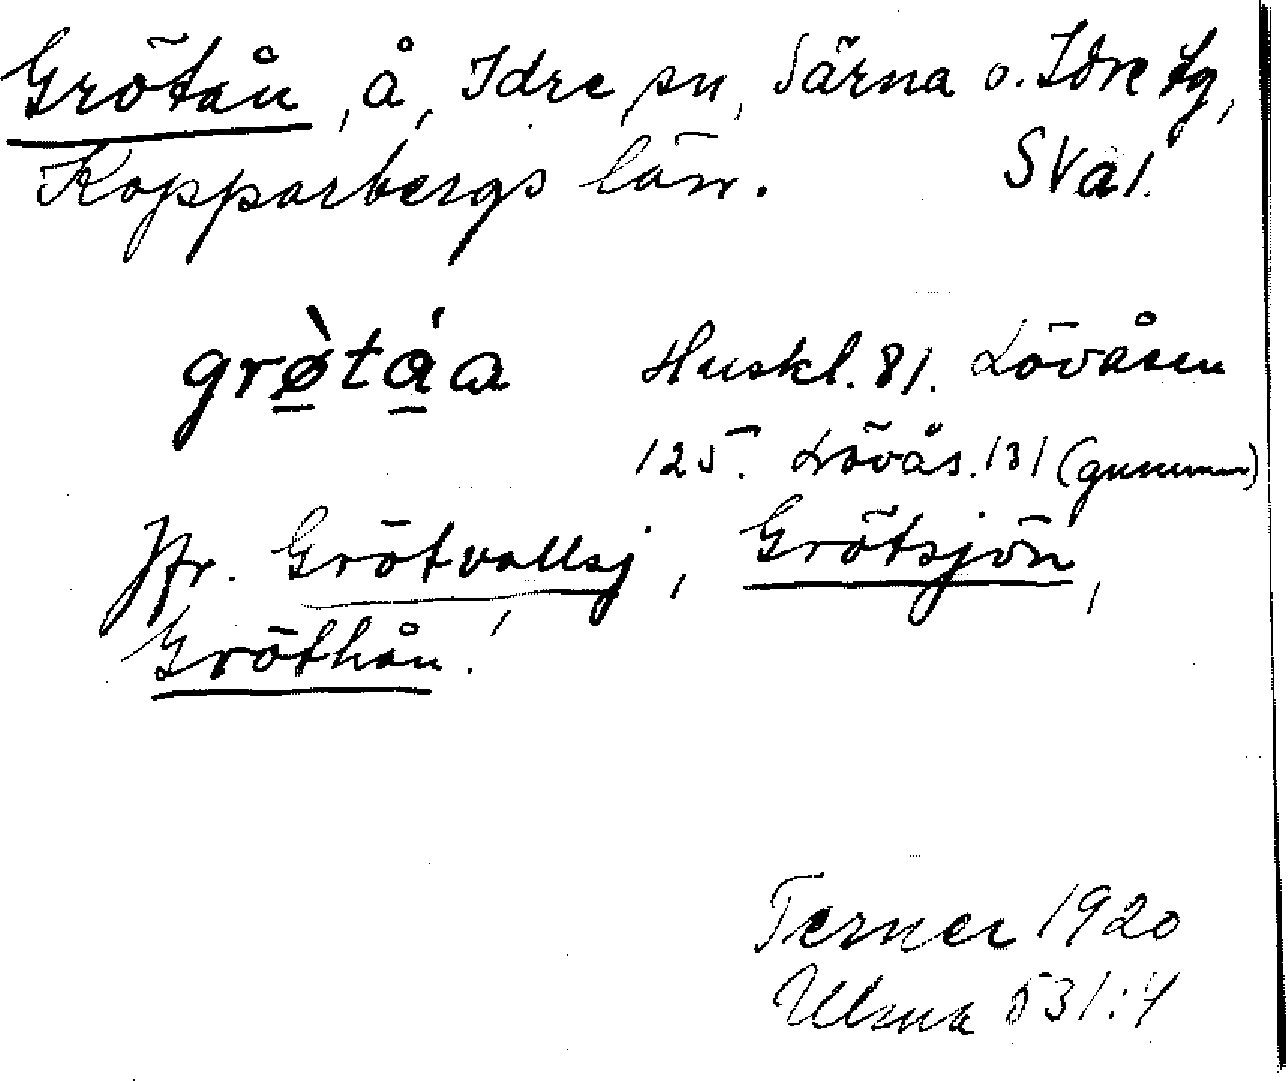 Grötån, å, Idre sn, Särna o. Idre tg,
Kopparbergs län. SVal.
grø̀táa Huskl. 81. Lövåsen
125. Lövås. 131 (gummor)
Jfr. Grötvallsj, Grötsjön,
Gröthån.
Terner 1920
Ulma 531:4